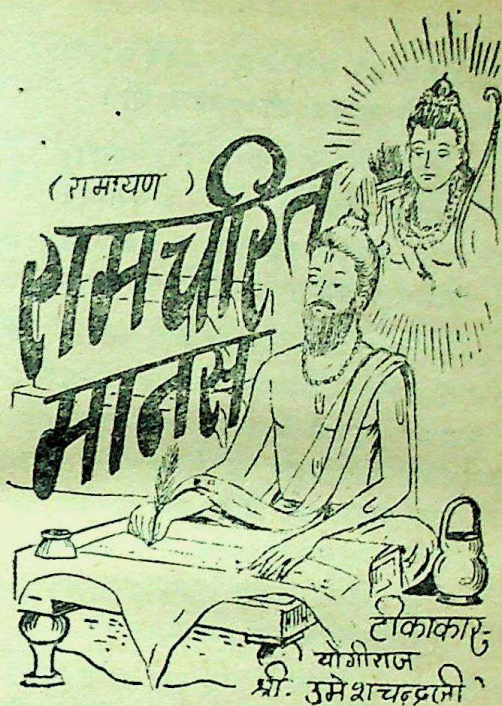 ( रामायण )
रामचरित
मानस
टीकाकार-
योगीराज
श्री. उमेशचन्द्रजी